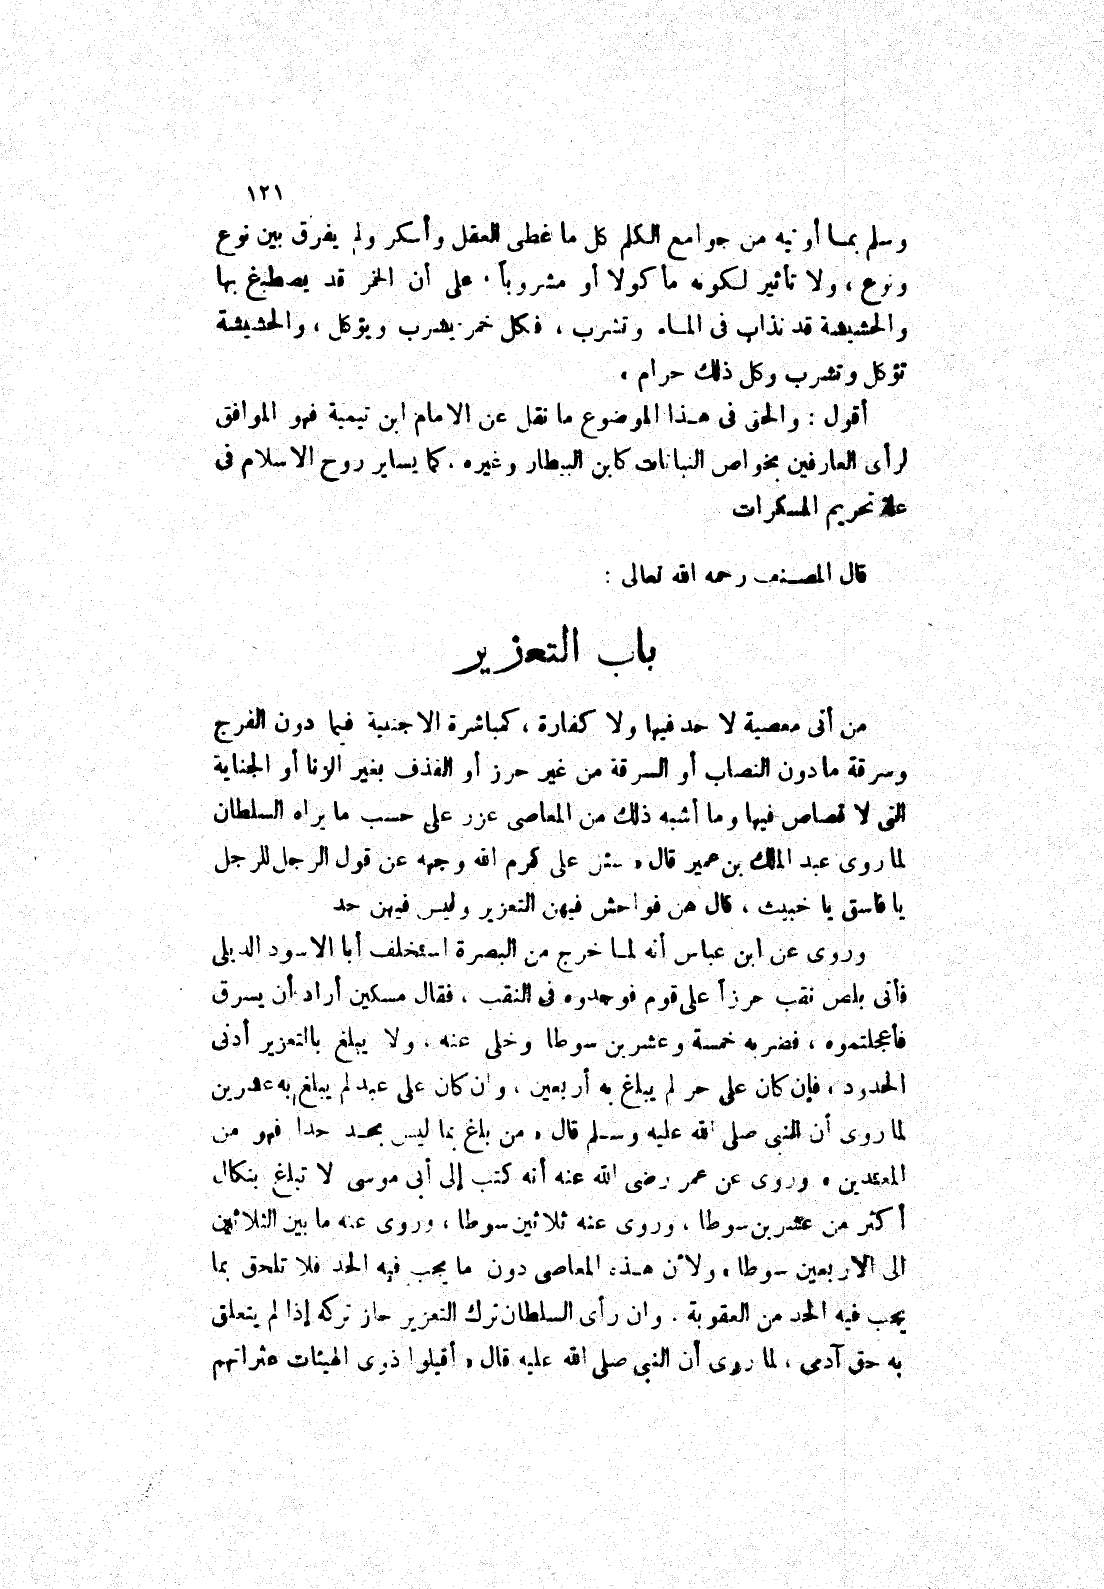 ١٢١
وسلم بما أوتيه من جوامع الكلم كل ما غطى العقل وأسكر ولم يفرق بين نوع
ونوع ، ولا تأثير لكونه مأكولا أو مشروباً . على أن الخمر قد يصطبغ بها
والحشيشة قد تذاب فى الماء وتشرب ، فكل خمر يشرب ويؤكل ، والحشيشة
تؤكل وتشرب وكل ذلك حرام .
أقول : والحق فى هذا الموضوع ما نقل عن الامام ابن تيمية فهو الموافق
لرأى العارفين بخواص النباتات كابن البيطار وغيره . كما يساير روح الاسلام فى
علة تحريم المسكرات
قال المصنف رحمه الله تعالى :
باب التعزير
من أتى معصية لا حد فيها ولا كفارة ، كمباشرة الاجنبية فيما دون الفرج
وسرقة مادون النصاب أو السرقة من غير حرز أو القذف بغير الزنا أو الجناية
التى لا قصاص فيها وما أشبه ذلك من المعاصى عزر على حسب ما يراه السلطان
لما روى عبد الملك بن عمير قال « سئل على كرم الله وجهه عن قول الرجل للرجل
يا فاسق يا خبيث ، قال هن فواحش فيهن التعزير وليس فيهن حد
وروى عن ابن عباس أنه لما خرج من البصرة استخلف أبا الاسود الديلى
فأتى بلص نقب حرزاً على قوم فوجدوه فى النقب ، فقال مسكين أراد أن يسرق
فأعجلتموه ، فضربه خمسة وعشرين سوطا وخلى عنه ، ولا يبلغ بالتعزير أدنى
الحدود ، فإن كان على حر لم يبلغ به أربعين ، وان كان على عبد لم يبلغ به عشرين
لما روى أن النبى صلى الله عليه وسلم قال « من بلغ بما ليس بحد حدا فهو من
المعتدين » وروى عن عمر رضى الله عنه أنه كتب إلى أبى موسى لا تبلغ بنكال
أكثر من عشرين سوطا ، وروى عنه ثلاثين سوطا ، وروى عنه ما بين الثلاثين
الى الاربعين سوطا » ولأن هذه المعاصى دون ما يجب فيه الحد فلا تلحق بما
يجب فيه الحد من العقوبة . وان رأى السلطان ترك التعزير جاز تركه إذا لم يتعلق
به حق آدمى ، لما روى أن النبى صلى الله عليه قال « أقيلوا ذوى الهيئات عثراتهم